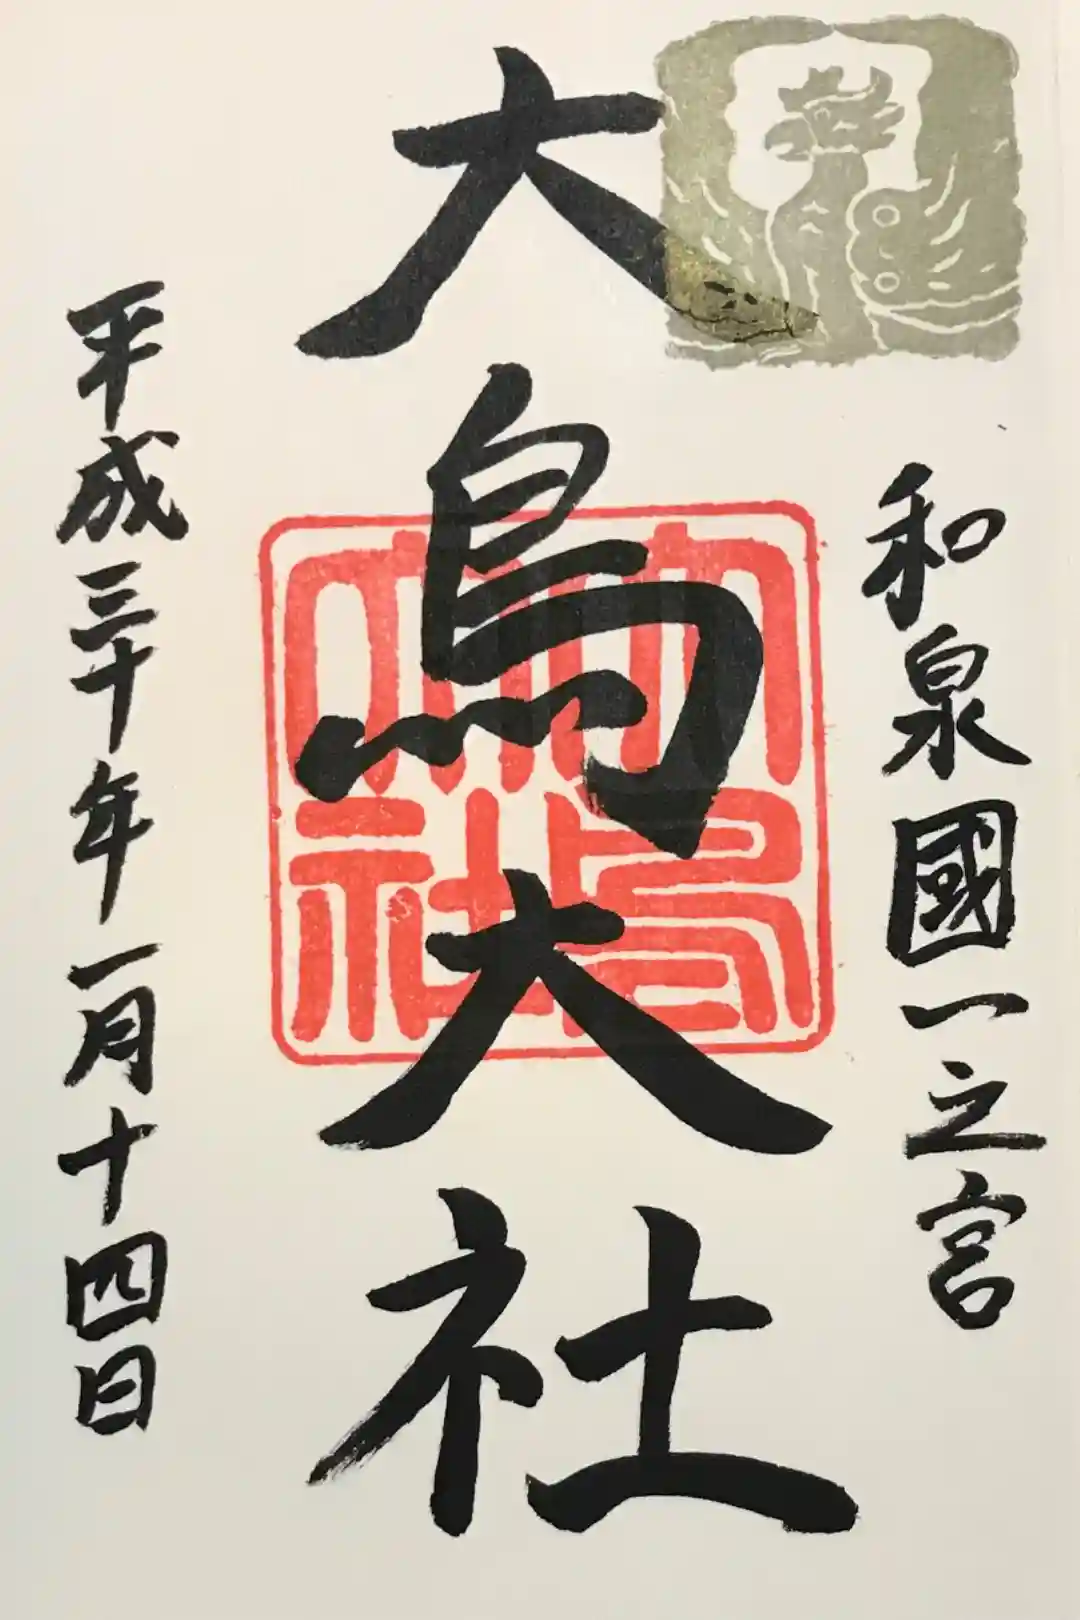 和泉國一之宮
大鳥大社
平成三十年一月十四日
大鳥大社